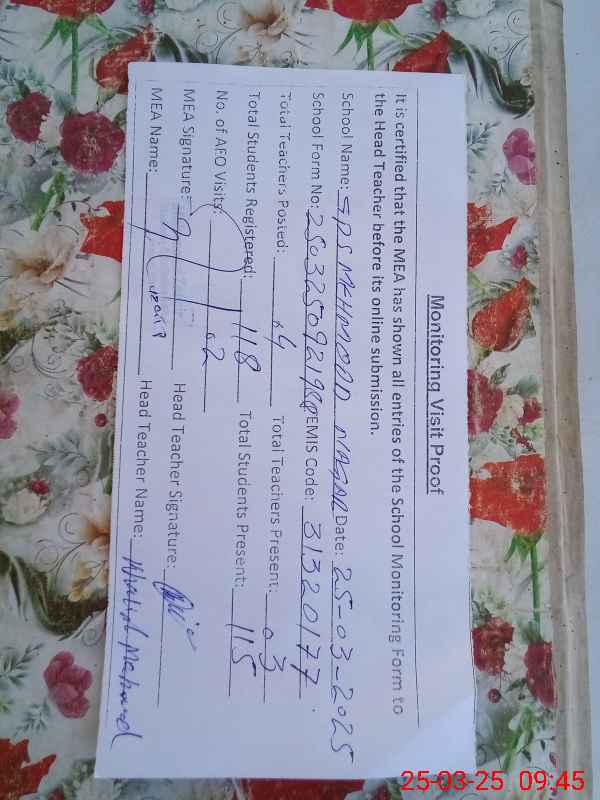 Monitoring Visit Proof
It is certified that the MEA has shown all entries of the School Monitoring Form to
the Head Teacher before its online submission.
School Name: GPS MEHMOOD NAGAR Date: 25-03-2025
School Form No: EMIS Code: 31320177
Total Teachers Posted: 04 Total Teachers Present: 03
Total Students Registered: 118 Total Students Present: 115
No. of AEO Visits: 02
MEA Signature: Head Teacher Signature:
MEA Name: Head Teacher Name: Khalid Mehmood
25-03-25 09:45